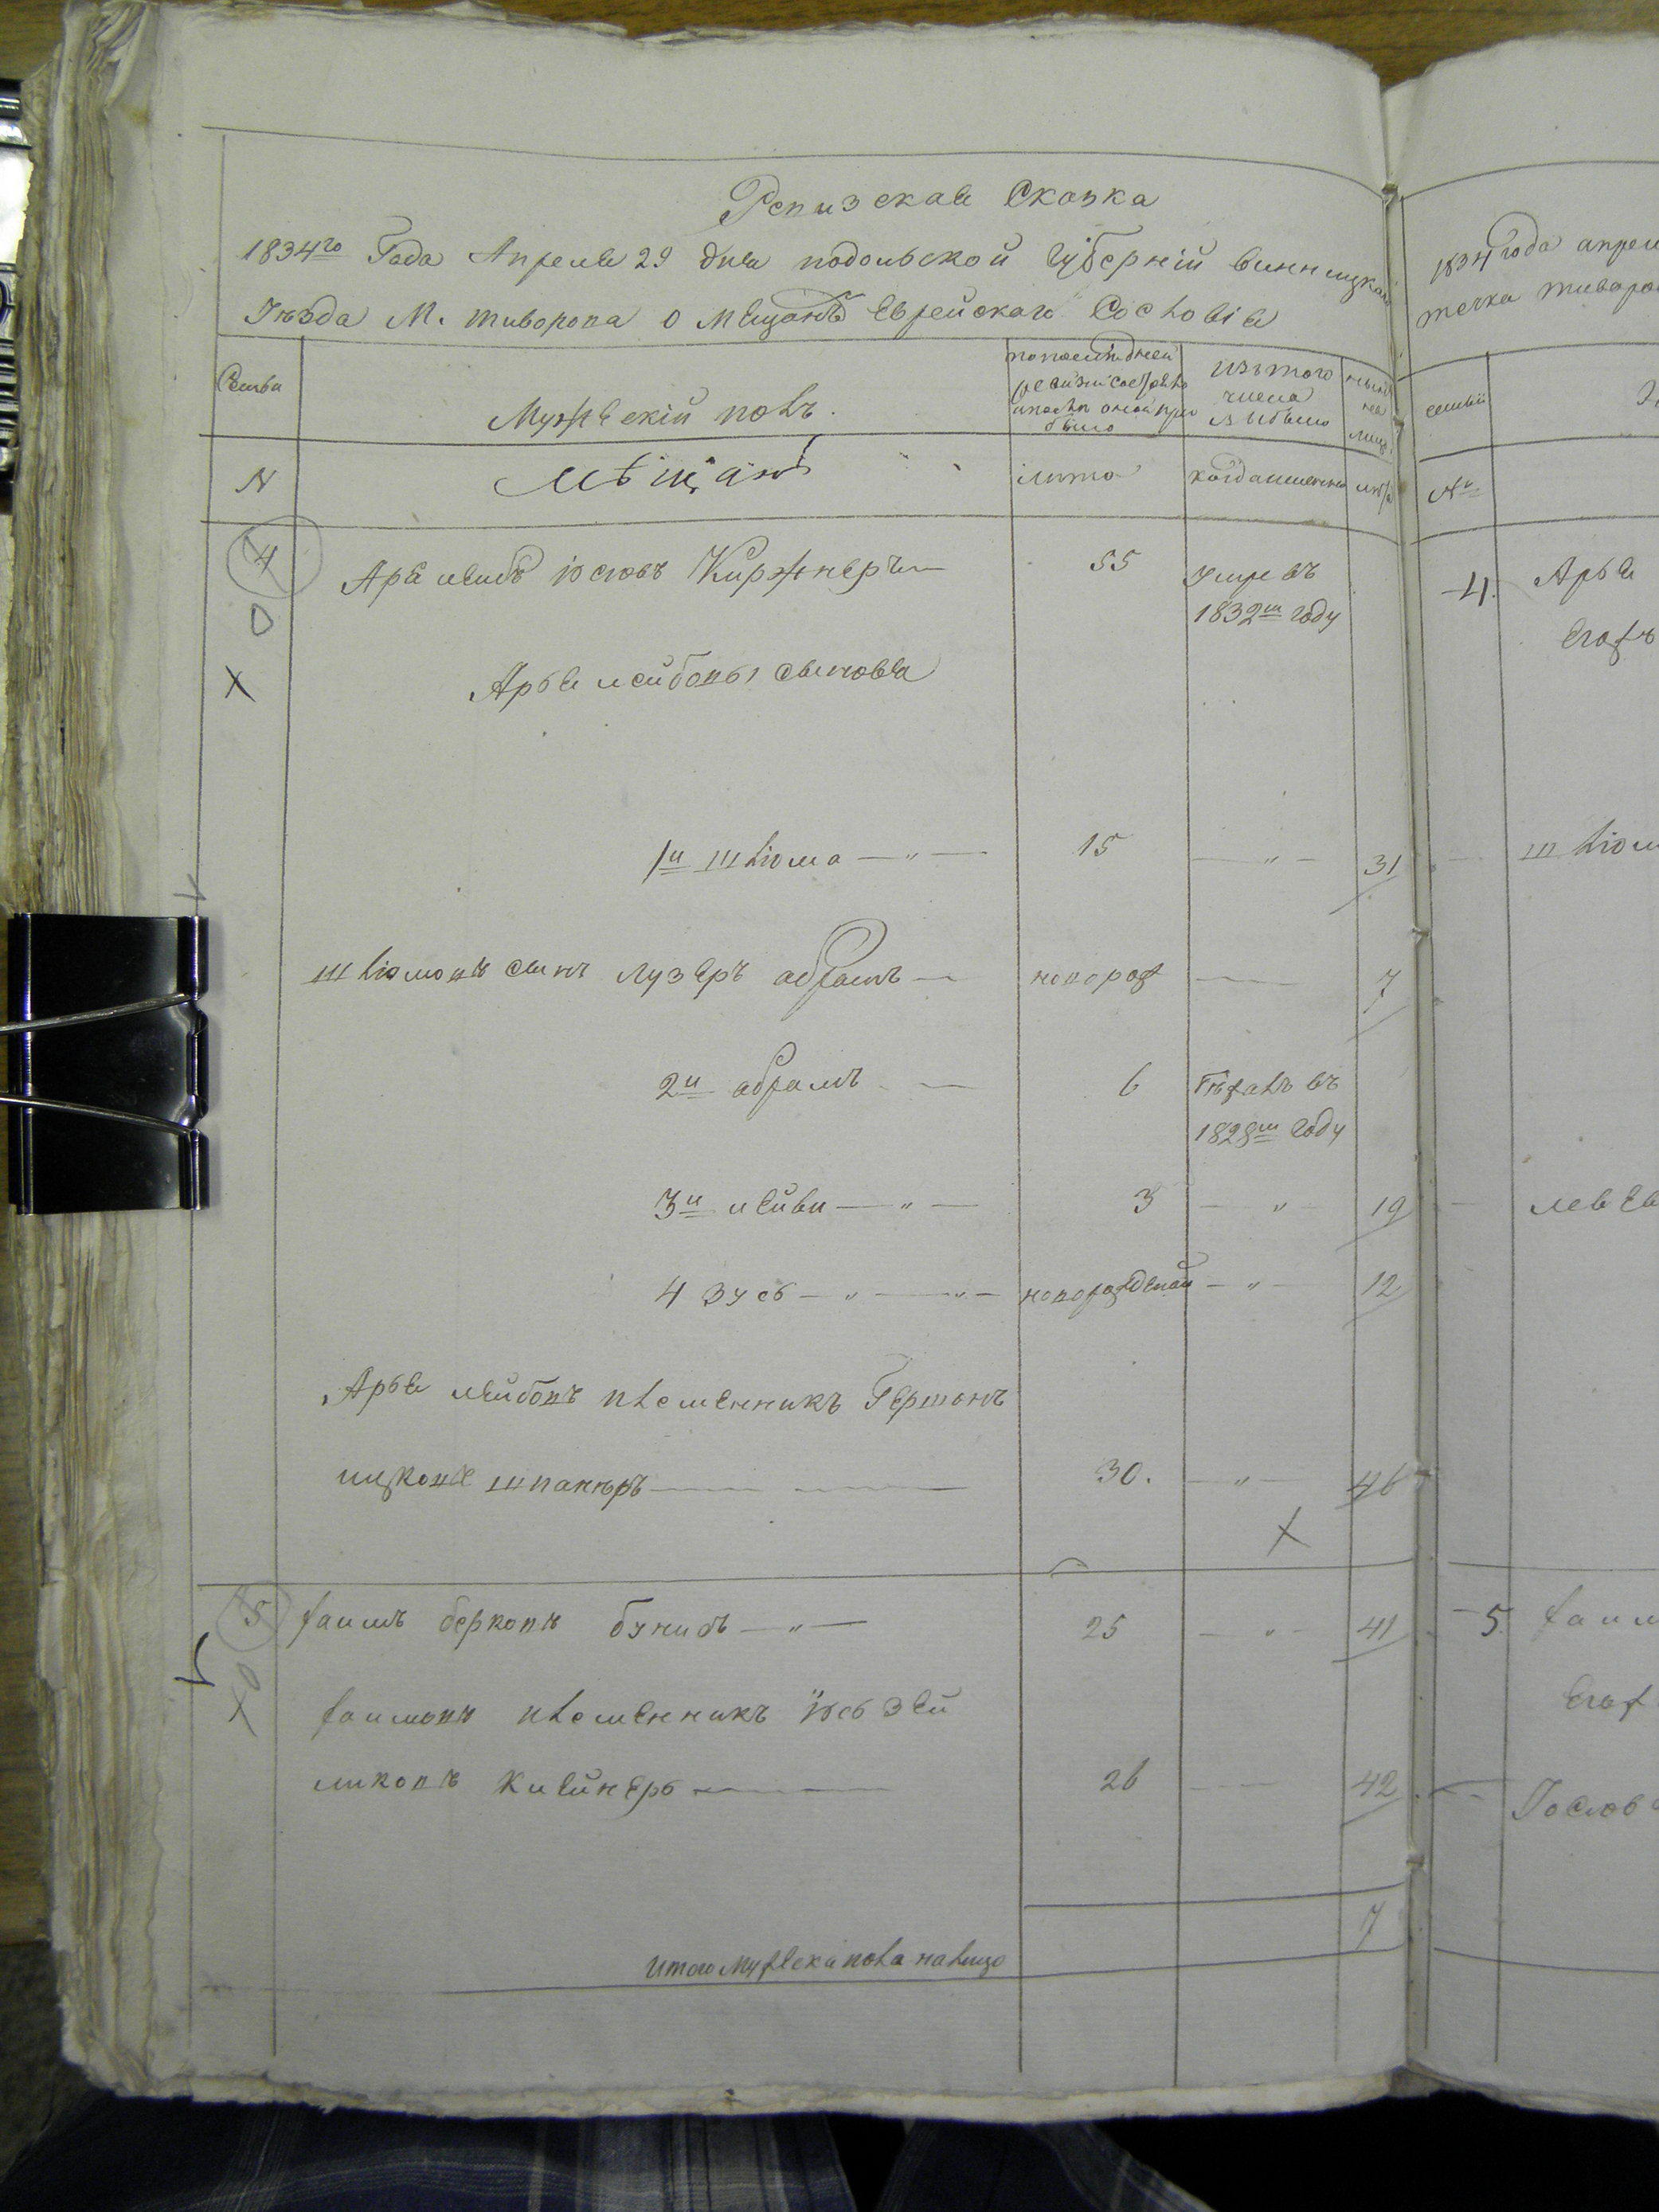 Ревизская Сказка
1834го Года Апреля 29 дня подольской Губерній винницкаго
Уезда М. тиворова о Мещанъ Еврейскаго Сословія
Семьи
Мужескій полъ.
по последней ревизіи состояло и после оной прибыло
Изъ того числа выбыло
ныне на лицо
N
Мѣщане
лета
когда именно
лета
4
Арье лейбъ Іосіовъ Киржнеръ
55
Умре въ
1832м году
Арье лейбовы сыновья
1й Шліома — „ —
15
— „ —
31
Шліомовъ сынъ Лузеръ абрамъ —
новорож
7
2й абрамъ —
6
Бежалъ въ
1828м году
3й лейви — „ —
3
— „ —
19
4 Зусь — „ — „ —
новорожденый
— „ —
12
Арье лейбовъ племенникъ Гершонъ
ицковъ шпанеръ
30.
— „ —
46
5
хаимъ берковъ бунисъ — „ —
25
— „ —
41
хаимовъ племенникъ Іось Зей
ликовъ клейнеръ
26
42
Итого Мужеска пола на лицо
7
1834 года апрел
течка тиворо
семьи
№
4.
Арье
Егож
шліом
лев
5.
хаим
Егож
Іосіов